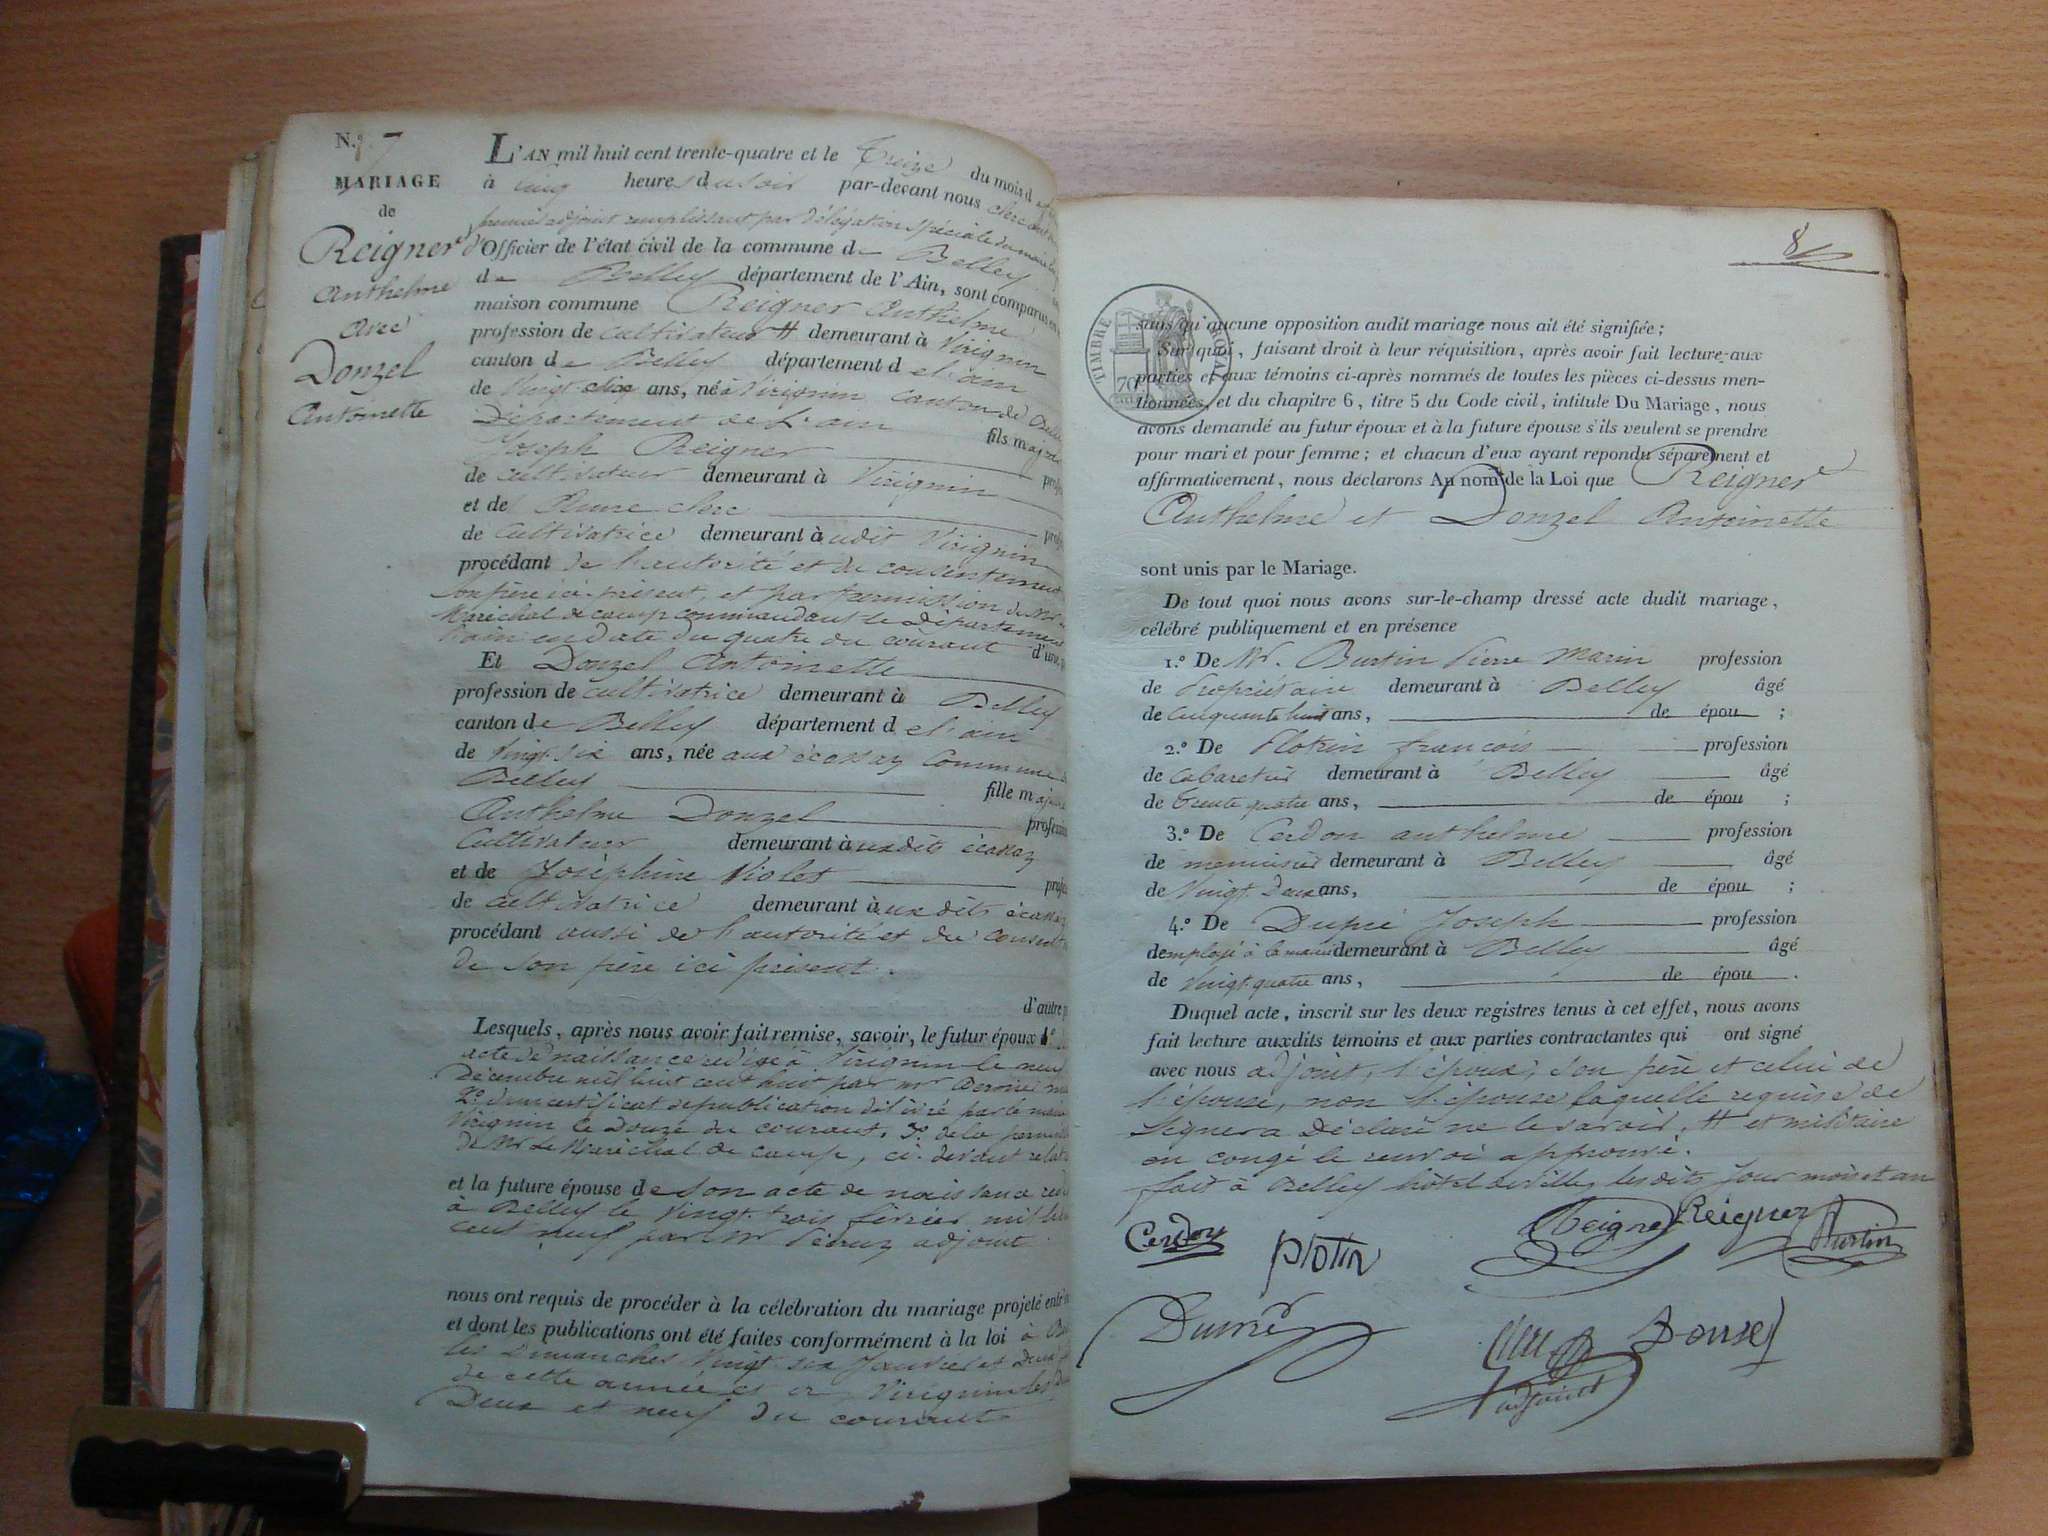 N.º 7
MARIAGE
de
Reigner
Anthelme
avec
Donzel
Antoinette
L'AN mil huit cent trente-quatre et le treize du mois d
à cinq heures du soir par-devant nous clerc
premier adjoint remplissant par délégation spéciale du maire
d'Officier de l'état civil de la commune de Belley
de Belley département de l'Ain, sont comparus en
maison commune Reigner Anthelme
profession de cultivateur # demeurant à Virignin
canton de Belley département de l'ain
de vingt cinq ans, né à Virignin Canton de Belley
Département de L'ain fils majeur
Joseph Reigner
de cultivateur demeurant à Virignin
et de clerc
de Cultivatrice demeurant audit Virignin
procédant de l'autorité et du consentement
son père ici présent, et par permission de Mr
Maréchal de camp commandant le Département
l'ain en date du quatre du courant d'une
Et Donzel Antoinette
profession de cultivatrice demeurant à Belley
canton de Belley département de l'ain
de vingt six ans, née aux écassaz Commune
Belley fille majeure
Anthelme Donzel profession
Cultivateur demeurant auxdits écassaz
et de Joséphine Violet
de cultivatrice demeurant auxdits écassaz
procédant aussi de l'autorité et du
de son père ici présent.
d'autre
Lesquels, après nous avoir fait remise, savoir, le futur époux 1.º
acte de naissance rédigé à Virignin le neuf
Décembre mil huit cent huit par mr
2.º d'un certificat de publication délivré par le maire
Virignin le Douze du courant, 3.º de la
de Mr Le Maréchal de camp, ci-devant
et la future épouse de son acte de naissance
à Belley le vingt trois février mil huit
cent neuf par Mr adjoint
nous ont requis de procéder à la célébration du mariage projeté
et dont les publications ont été faites conformément à la loi à
les Dimanches vingt six Janvier et Deux
de cette année et à Virignin les
Deux et neuf du courant
8
TIMBRE ROYAL
70
sans qu'aucune opposition audit mariage nous ait été signifiée ;
Sur quoi, faisant droit à leur réquisition, après avoir fait lecture aux
parties et aux témoins ci-après nommés de toutes les pièces ci-dessus men-
tionnées, et du chapitre 6, titre 5 du Code civil, intitulé Du Mariage, nous
avons demandé au futur époux et à la future épouse s'ils veulent se prendre
pour mari et pour femme ; et chacun d'eux ayant repondu séparément et
affirmativement, nous déclarons Au nom de la Loi que Reigner
Anthelme et Donzel Antoinette
sont unis par le Mariage.
De tout quoi nous avons sur-le-champ dressé acte dudit mariage,
célébré publiquement et en présence
1.º De Mr. Burtin Pierre Marin profession
de Propriétaire demeurant à Belley âgé
de cinquante huit ans, de épou ;
2.º De Plotin françois profession
de Cabaretier demeurant à Belley âgé
de trente quatre ans, de épou ;
3.º De Cerdon anthelme profession
de menuisier demeurant à Belley âgé
de vingt Deux ans, de épou ;
4.º De Dupré Joseph profession
d'employé à la mairie demeurant à Belley âgé
de vingt quatre ans, de épou .
Duquel acte, inscrit sur les deux registres tenus à cet effet, nous avons
fait lecture auxdits témoins et aux parties contractantes qui ont signé
avec nous adjoint, l'époux, son père et celui de
l'épouse, non l'épouse laquelle requise de
signer a Déclaré ne le savoir, # et militaire
en congé le renvoi approuvé.
fait à Belley hôtel de ville, lesdits jour mois et an
Cerdon Plotin Reigner Reigner Burtin
Dupré Donzel
adjoint